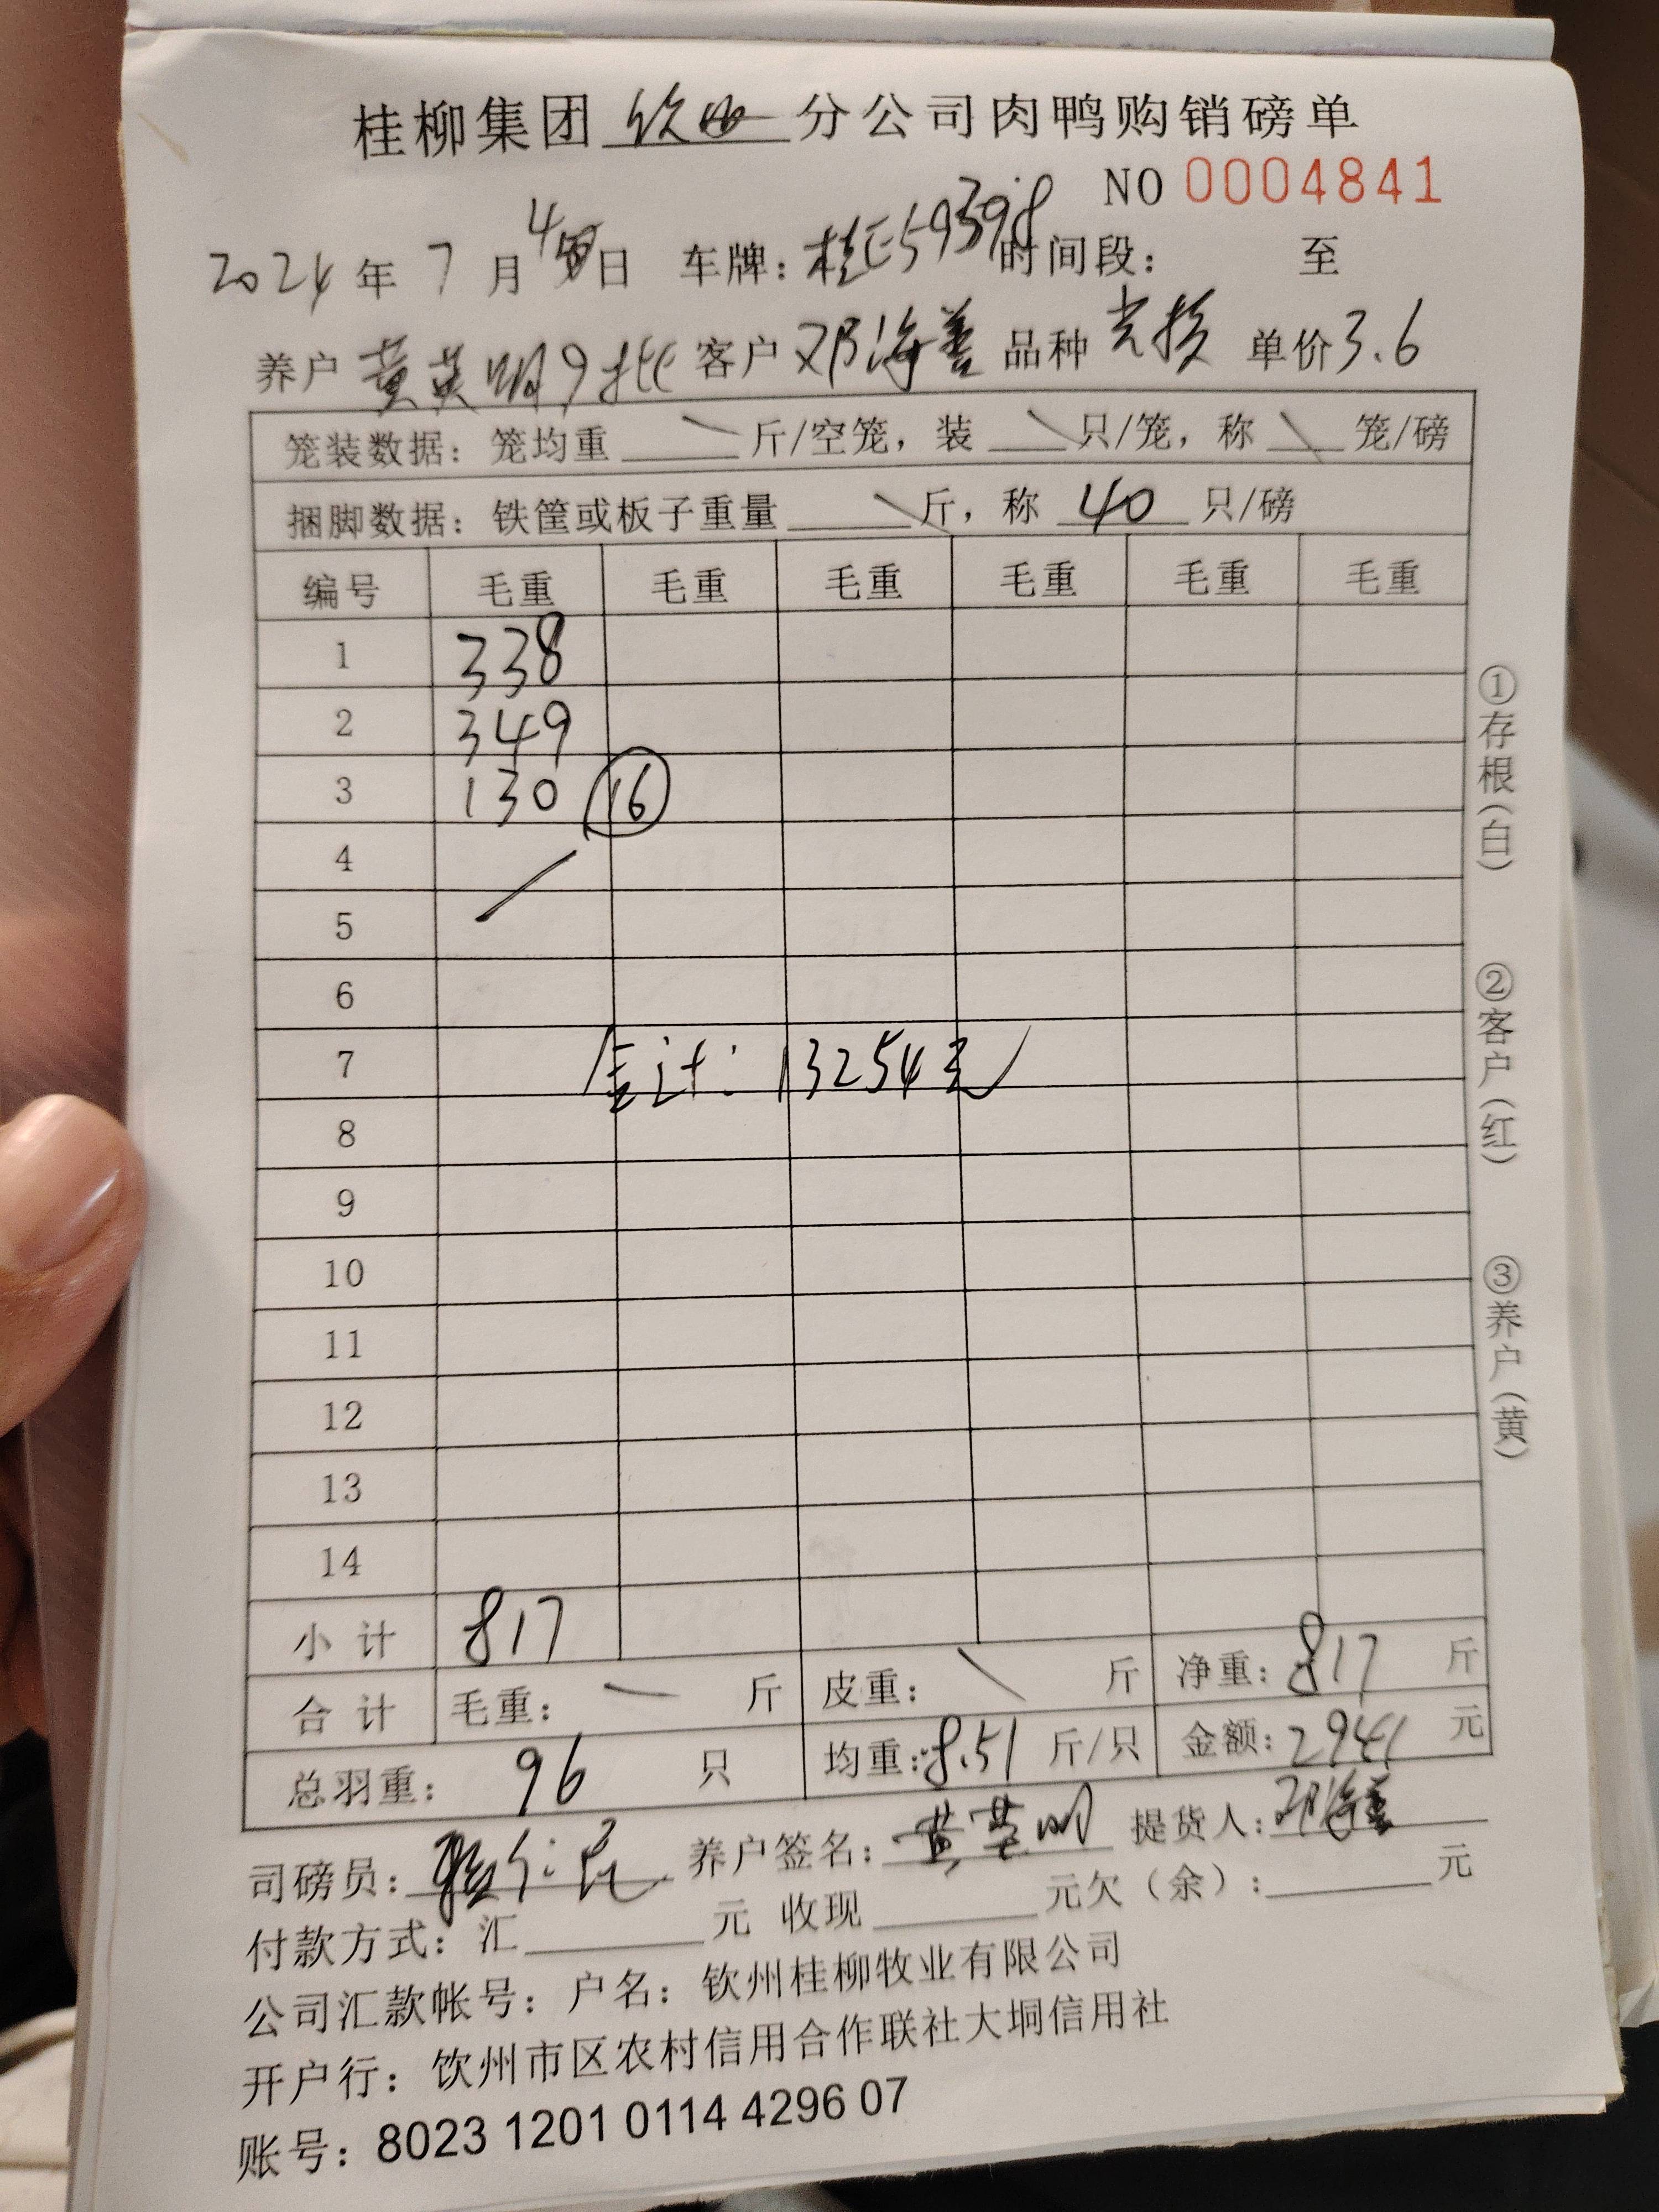 桂柳集团 钦州 分公司肉鸭购销磅单
NO 0004841
2024 年 7 月 4 日 车牌：桂E59398 时间段： 至
养户 黄英明9批 客户 邓海善 品种 单价 3.6
笼装数据：笼均重 \ 斤/空笼，装 \ 只/笼，称 \ 笼/磅
捆脚数据：铁筐或板子重量 \ 斤，称 40 只/磅
编号 毛重 毛重 毛重 毛重 毛重 毛重
1 338
2 349
3 130 16
4
5
6
7 合计：13254元
8
9
10
11
12
13
14
小计 817
合计 毛重： — 斤 皮重： \ 斤 净重：817 斤
总羽重： 96 只 均重：8.51 斤/只 金额：2941 元
司磅员： 养户签名：黄英明 提货人：邓海善
付款方式：汇 元 收现 元欠（余）： 元
公司汇款帐号：户名：钦州桂柳牧业有限公司
开户行：钦州市区农村信用合作联社大垌信用社
账号：8023 1201 0114 4296 07
①存根（白） ②客户（红） ③养户（黄）